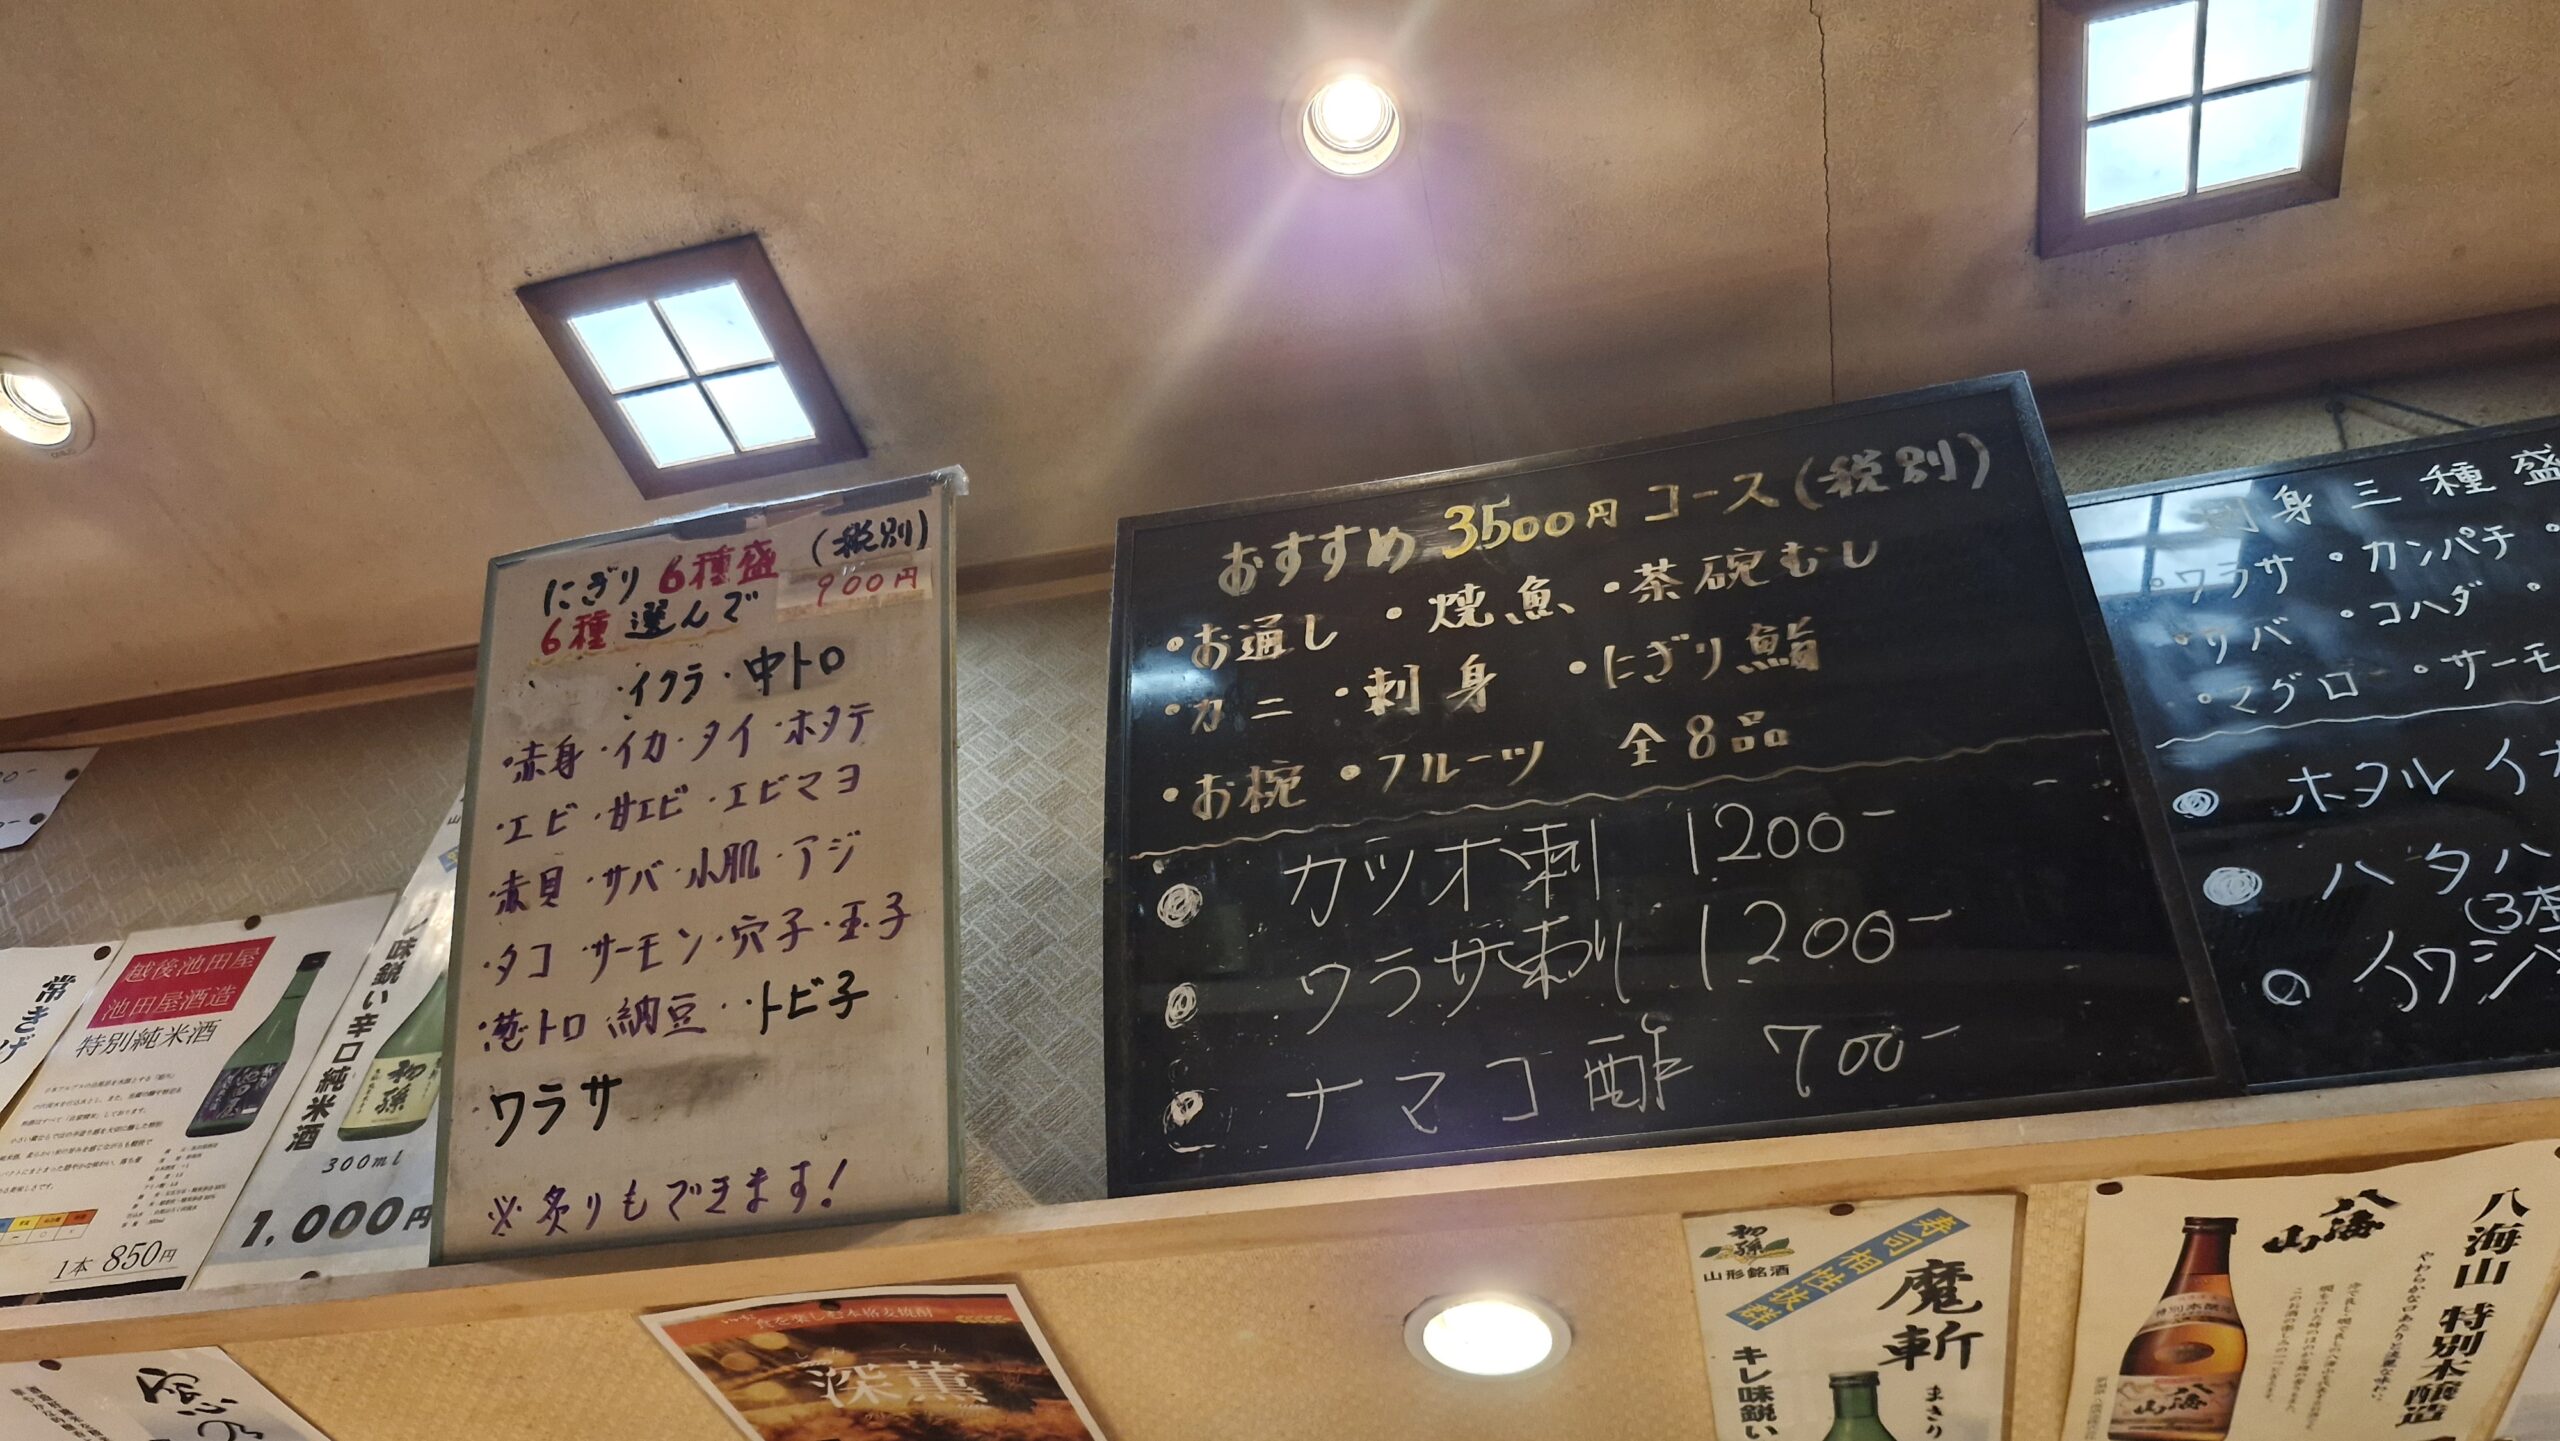 にぎり 6種盛 (税別)
6種 選んで 900円
・イクラ・中トロ
・赤身・イカ・タイ・ホタテ
・エビ・甘エビ・エビマヨ
・赤貝・サバ・小肌・アジ
・タコ・サーモン・穴子・玉子
・葱トロ 納豆・トビ子
ワラサ
※炙りもできます!
おすすめ 3500円 コース (税別)
・お通し ・焼魚 ・茶碗むし
・カニ ・刺身 ・にぎり鮨
・お椀 ・フルーツ 全8品
カツオ刺 1200-
ワラサ刺 1200-
ナマコ酢 700-
刺身三種盛
・ワラサ ・カンパチ ・
・サバ ・コハダ ・
・マグロ ・サーモ
ホタルイカ
ハタハ
(3本
イワシ
常きげ
越後池田屋
池田屋酒造
特別純米酒
1本 850円
味鋭い辛口純米酒
初孫
300ml
1,000円
食を楽しむ本格麦焼酎
しんくん
深薫
初孫
山形銘酒
寿司相性抜群
魔斬
まきり
キレ味鋭い
八海山
八海山 特別本醸造
やわらかな口あたりと淡麗な味わい。
特別本醸造
八海山